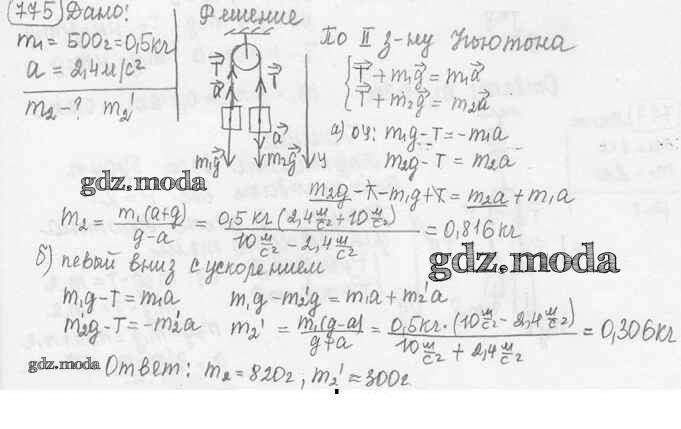 775 Дано: Решение
m₁ = 500г = 0,5кг
a = 2,4м/с²
m₂ - ? m₂'
По II з-ну Ньютона
T⃗ + m₁g⃗ = m₁a⃗
T⃗ + m₂g⃗ = m₂a⃗
T⃗ T⃗
a⃗
a⃗
m₁g⃗ m₂g⃗ y
а) оy: m₁g - T = -m₁a
m₂g - T = m₂a
gdz.moda
m₂g - T - m₁g + T = m₂a + m₁a
m₂ = m₁(a+g)/(g-a) = 0,5 кг (2,4 м/с² + 10 м/с²)/(10 м/с² - 2,4 м/с²) = 0,816кг
gdz.moda
б) певый вниз с ускорением
m₁g - T = m₁a m₁g - m₂g = m₁a + m₂'a
m₂g - T = -m₂'a m₂' = m₁(g-a)/(g+a) = 0,5кг · (10 м/с² - 2,4 м/с²)/(10 м/с² + 2,4 м/с²) = 0,306кг
gdz.moda Ответ: m₂ = 820г, m₂' ≈ 300г